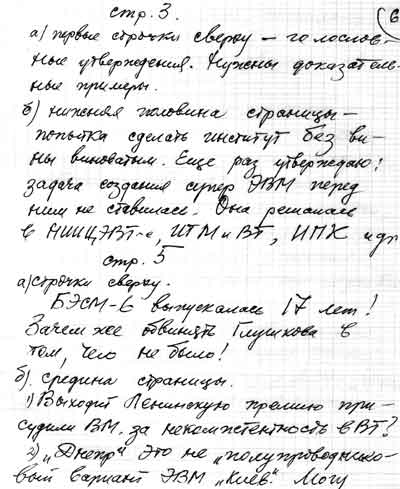 6
стр. 3.
а) первые строчки сверху – голослов-
ные утверждения. Нужны доказатель-
ные примеры.
б) нижняя половина страницы –
попытка сделать институт без ви-
ны виноватым. Еще раз утверждаю:
задача создания супер ЭВМ перед
ним не ставилась. Она решалась
в НИИЦЭВТ-е, ИТМ и ВТ, ИПК и др
стр. 5
а) строчки сверху.
БЭСМ-6 выпускалась 17 лет!
Зачем же обвинять Глушкова в
том, чего не было!
б). средина страницы.
1) Выходит Ленинскую премию при-
судили ВМ. за некомпетентность в ВТ?
2) „Днепр" это не „полупроводнико-
вый вариант ЭВМ „Киев". Могу